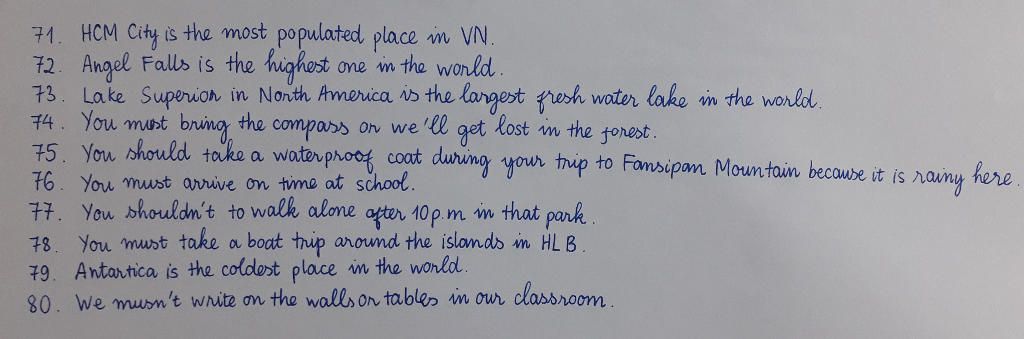 71. HCM City is the most populated place in VN.
72. Angel Falls is the highest one in the world.
73. Lake Superior in North America is the largest fresh water lake in the world.
74. You must bring the compass or we'll get lost in the forest.
75. You should take a waterproof coat during your trip to Fansipan Mountain because it is rainy here.
76. You must arrive on time at school.
77. You shouldn't to walk alone after 10p.m in that park.
78. You must take a boat trip around the islands in HLB.
79. Antartica is the coldest place in the world.
80. We musn't write on the walls or tables in our classroom.